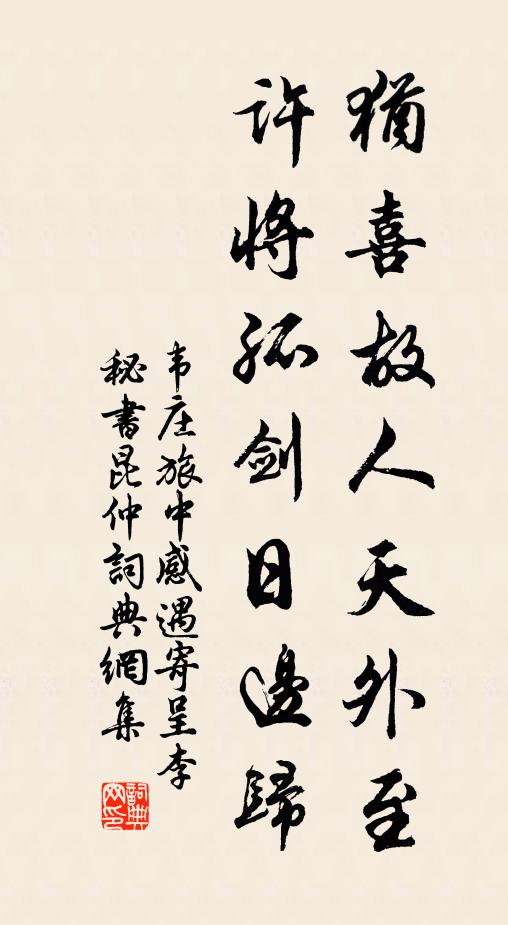 猶喜故人天外至
許將孤劍日邊歸
韦庄旅中感遇寄呈李
秘書昆仲詞典網集
詞典
网印